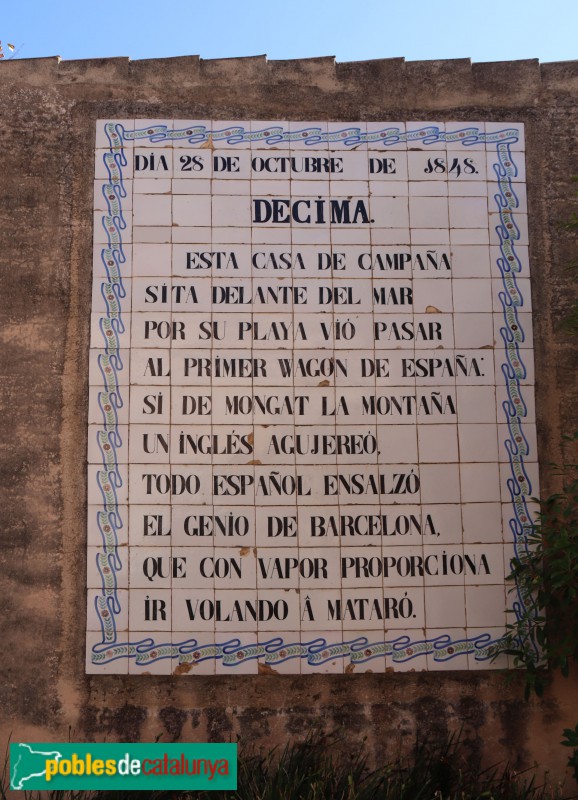 DÍA 28 DE OCTUBRE DE 1848.
DECIMA.
ESTA CASA DE CAMPAÑA
SITA DELANTE DEL MAR
POR SU PLAYA VIÓ PASAR
AL PRIMER WAGON DE ESPAÑA:
SÍ DE MONGAT LA MONTAÑA
UN INGLÉS AGUJEREÓ,
TODO ESPAÑOL ENSALZÓ
EL GENIO DE BARCELONA,
QUE CON VAPOR PROPORCIONA
IR VOLANDO Â MATARÓ.
poblesdecatalunya